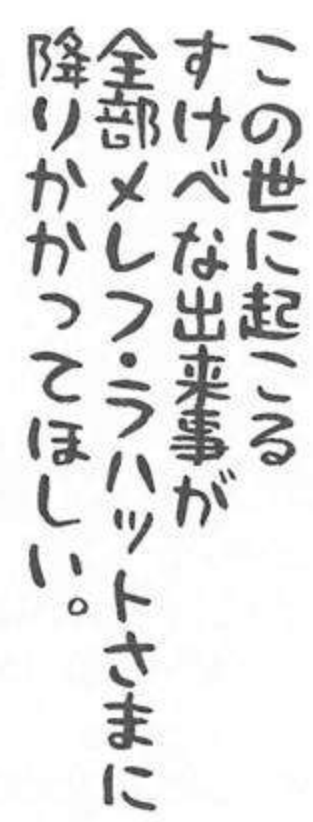 この世に起こる
すけべな出来事が
全部メレフ・ラハットさまに
降りかかってほしい。